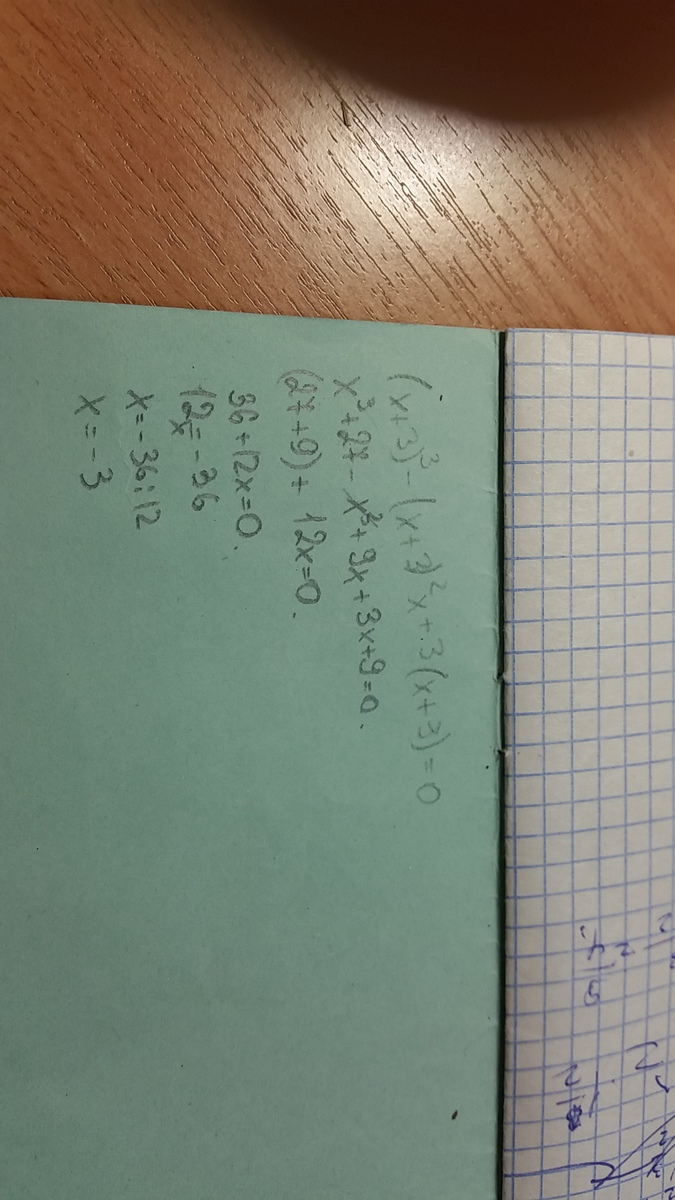 (x+3)³-(x+3)²x+3(x+3)=0
x³+27-x³+9x+3x+9=0.
(27+9)+12x=0.
36+12x=0.
12x=-36
x=-36:12
x=-3